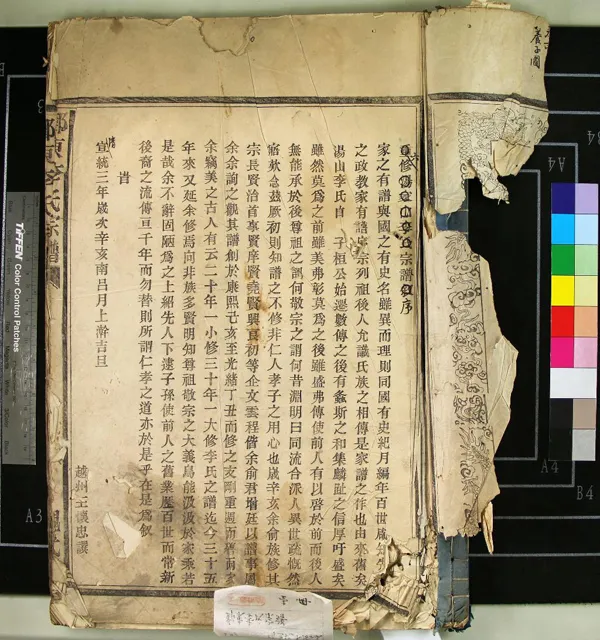 重修湯山李氏宗譜序
家之有譜與國之有史名雖異而理則同國有史紀月編年百世
之政教家有譜宗列祖後人允識氏族之相傳是家譜之作也由來舊矣
湯山李氏自 子桓公始遷數傳之後有螽斯之和集麟趾之信厚吁盛矣
雖然莫為之前雖美弗彰莫為之後雖盛弗傳使前人有以啓於前而後人
無能承於後尊祖之謂何敬宗之謂何昔淵明曰同流合派人異世疏慨然
寤歎念茲厥初則知譜之不修非仁人孝子之用心也歲辛亥余俞族修其
宗長賢治首事賢庠賢堯賢興良初等企文雲程偕余俞君增廷以譜事屬
余余詢之觀其譜創於康熙乙亥至光緒丁丑而修之
余竊美之古人有云二十年一小修三十年一大修李氏之譜迄今三十五
年來又延余修焉向非族多賢明知尊祖敬宗之大義烏能汲汲於家乘若
是哉余不辭固陋為之上紹先人下逮子孫使前人之舊業歷百世而常新
後裔之流傳亘千年而勿替則所謂仁孝之道亦於是乎在是為敘
旹
宣統三年歲次辛亥南呂月上澣吉旦
越州王懷忠譔
東李氏宗譜
養正
TIFFEN Color Control Patches
A3
A4
A4
B4